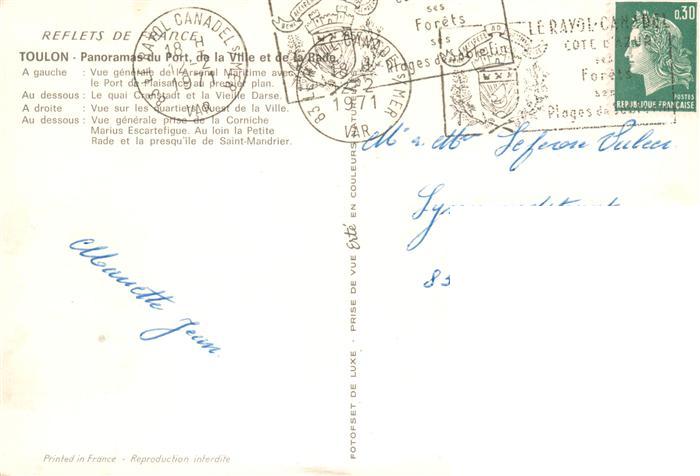 REFLETS DE FRANCE
TOULON - Panoramas du Port, de la Ville et de la Rade.
A gauche : Vue générale de l'Arsenal Maritime avec
le Port de Plaisance au premier plan.
Au dessous : Le quai Cronstadt et la Vieille Darse.
A droite : Vue sur les quartiers Ouest de la Ville.
Au dessous : Vue générale prise de la Corniche
Marius Escartefigue. Au loin la Petite
Rade et la presqu'île de Saint-Mandrier.
83 RAYOL CANADEL S/MER
18 H
1971
VAR
Forêts
ses
Plages de sable fin
83 RAYOL CANADEL S/MER
18 H
1971
VAR
LE RAYOL-CANADEL
COTE D'AZUR
ses
Forêts
ses
Plages de sable fin
0,30
POSTES
REPUBLIQUE FRANÇAISE
83
Mariette Jean
FOTOFSET DE LUXE - PRISE DE VUE Erté EN COULEURS NATURELLES
Printed in France - Reproduction interdite